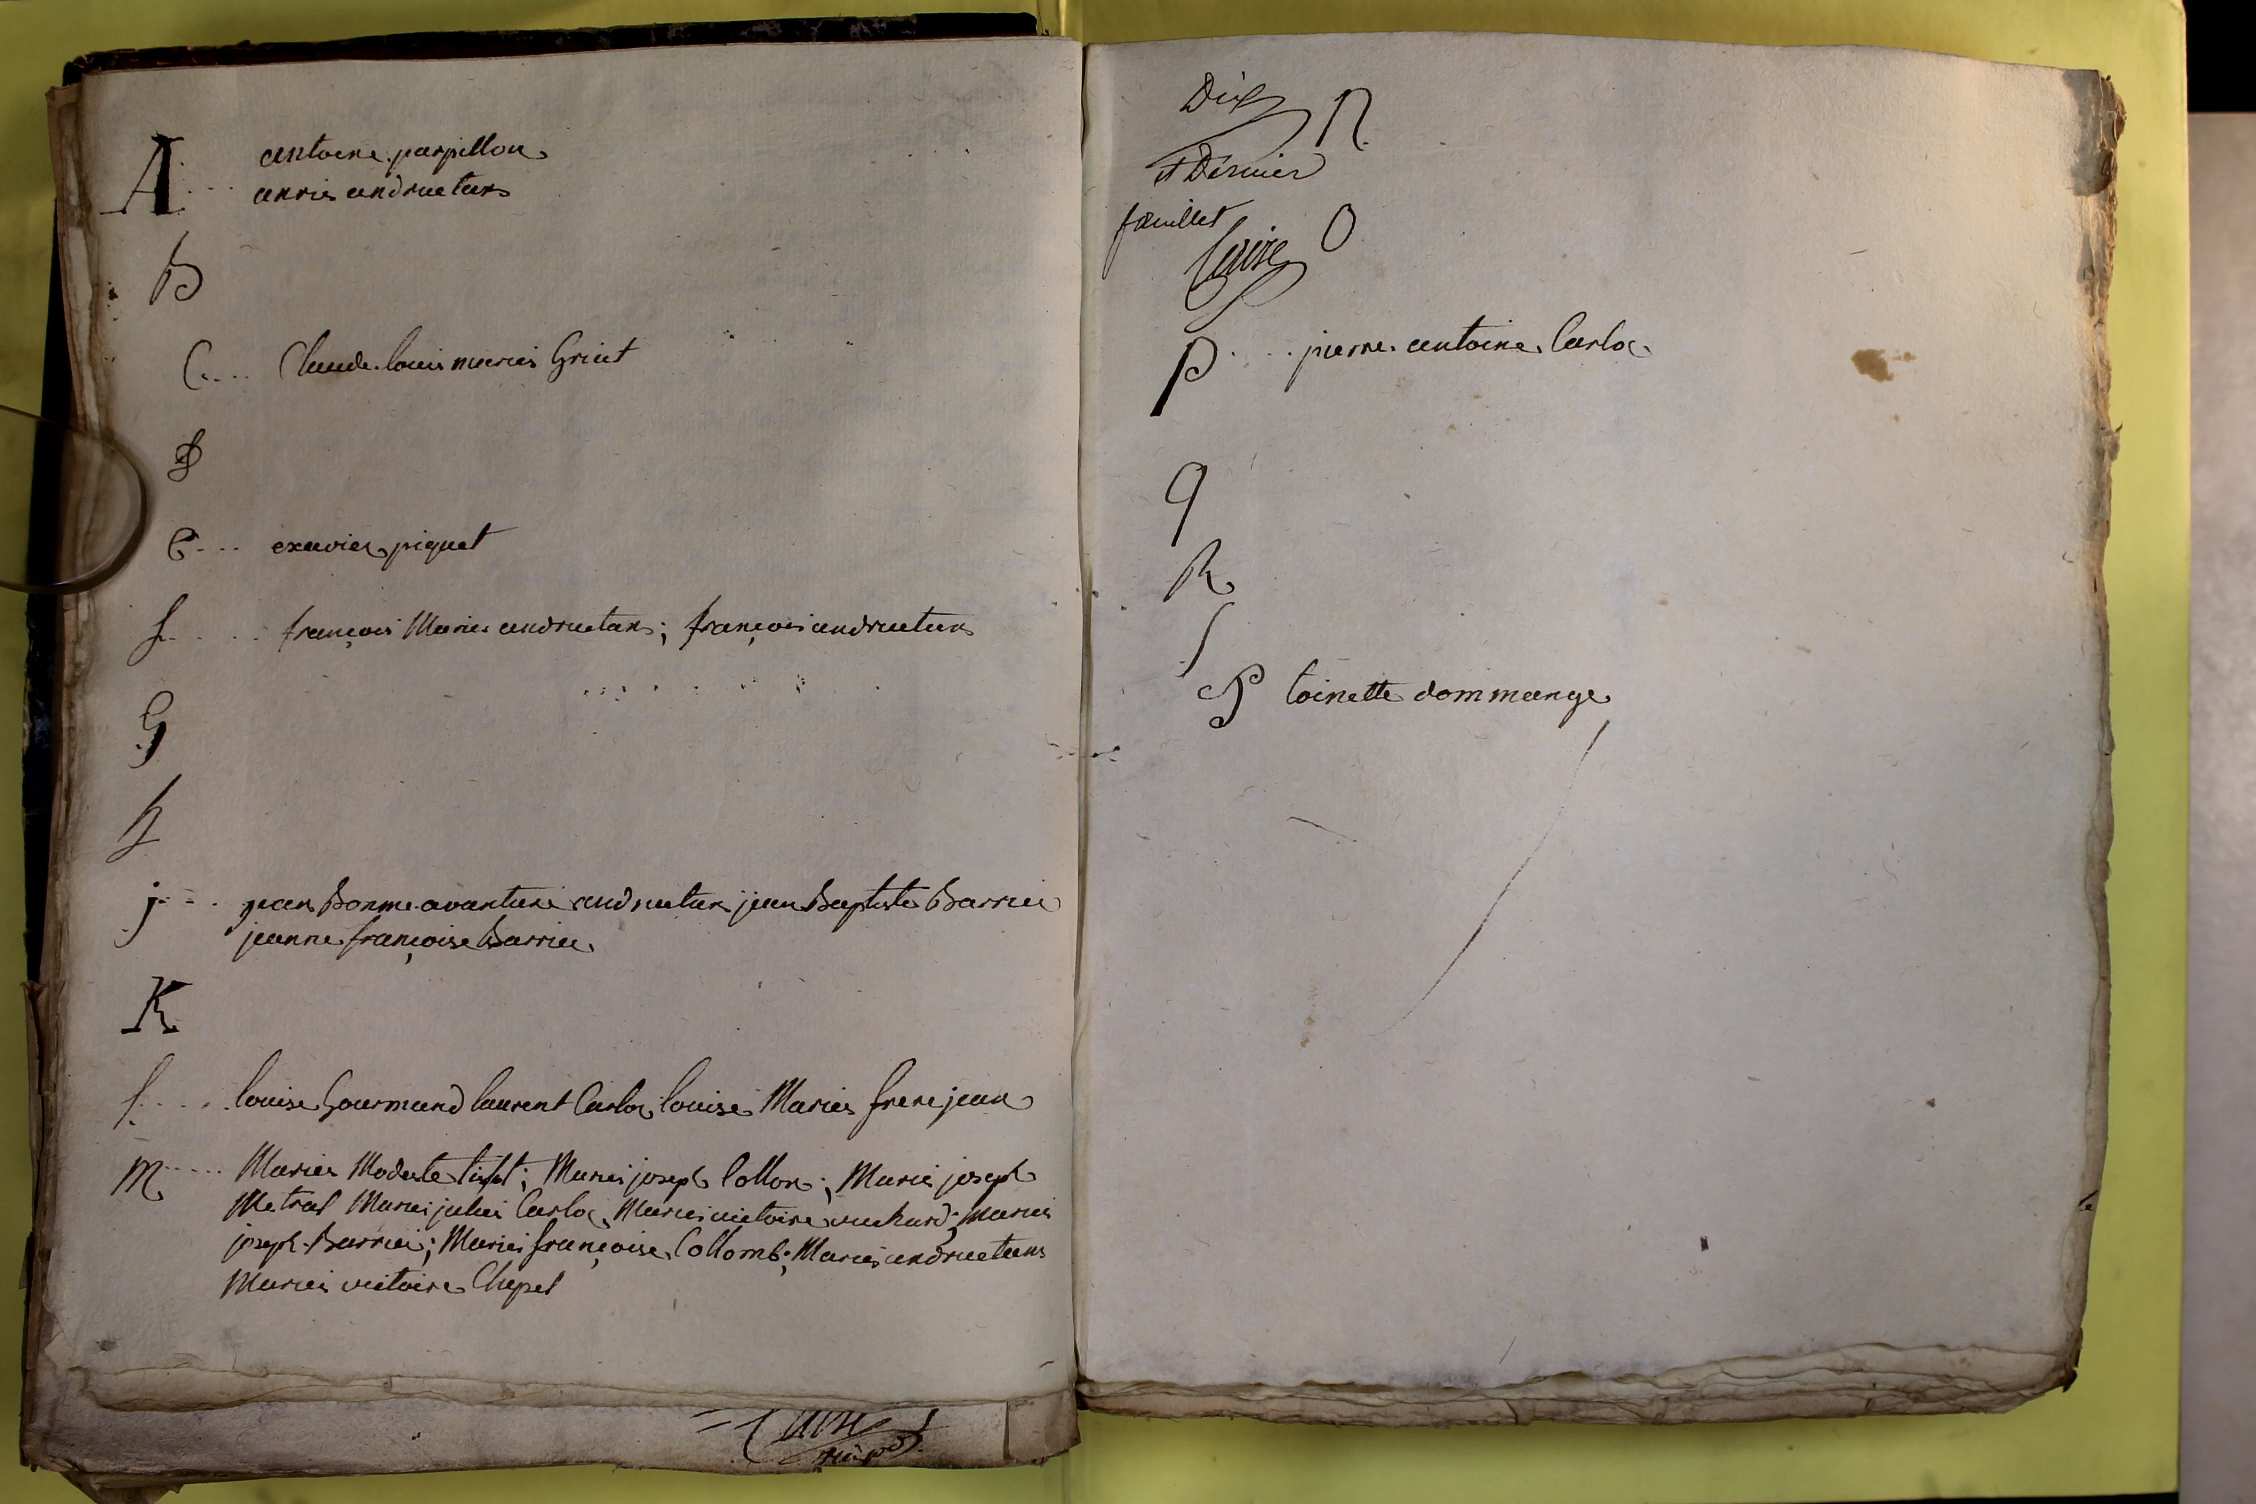 A ... antoine parpillon
annie andruetan
B
C .... Claude louis marie Griut
D
E ... exavier piquet
f ..... françois Marie andruetan; françois andruetan
G
h
j ... jean Bonne avanture andruetan jean Baptiste Barrier
jeanne françoise Barrier
K
l ..... louise Gourmand laurent Carloz louise Marie frere jean
M ..... Marie Modeste; Marie joseph Collon; Marie joseph
Metral Marie julie Carloz Marie victoire; Marie
joseph Barrier; Marie françoise Collomb; Marie andruetan
Marie victoire Chapel
Dix
N
et Dernier
feuillet
O
P .... pierre antoine Carloz
q
R
S
T toinette dommange